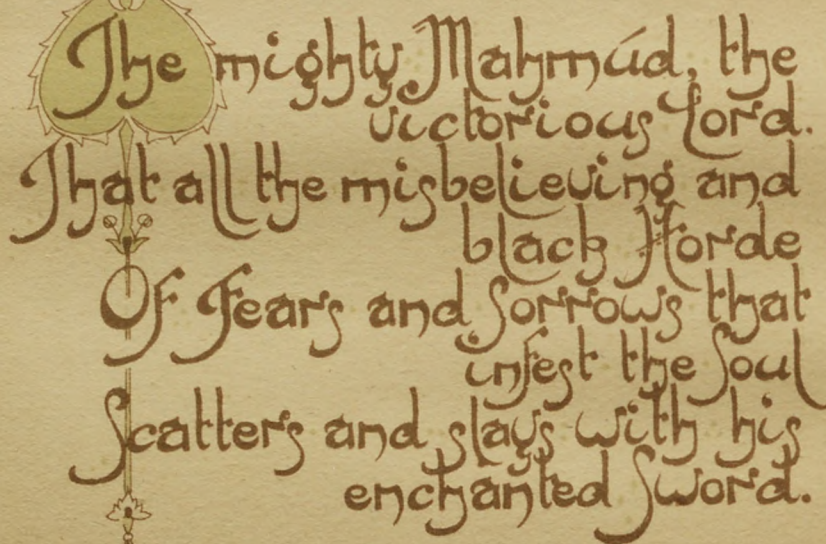 The mighty Mahmúd, the
victorious Lord.
That all the misbelieving and
black Horde
Of Fears and Sorrows that
infest the Soul
Scatters and slays with his
enchanted Sword.